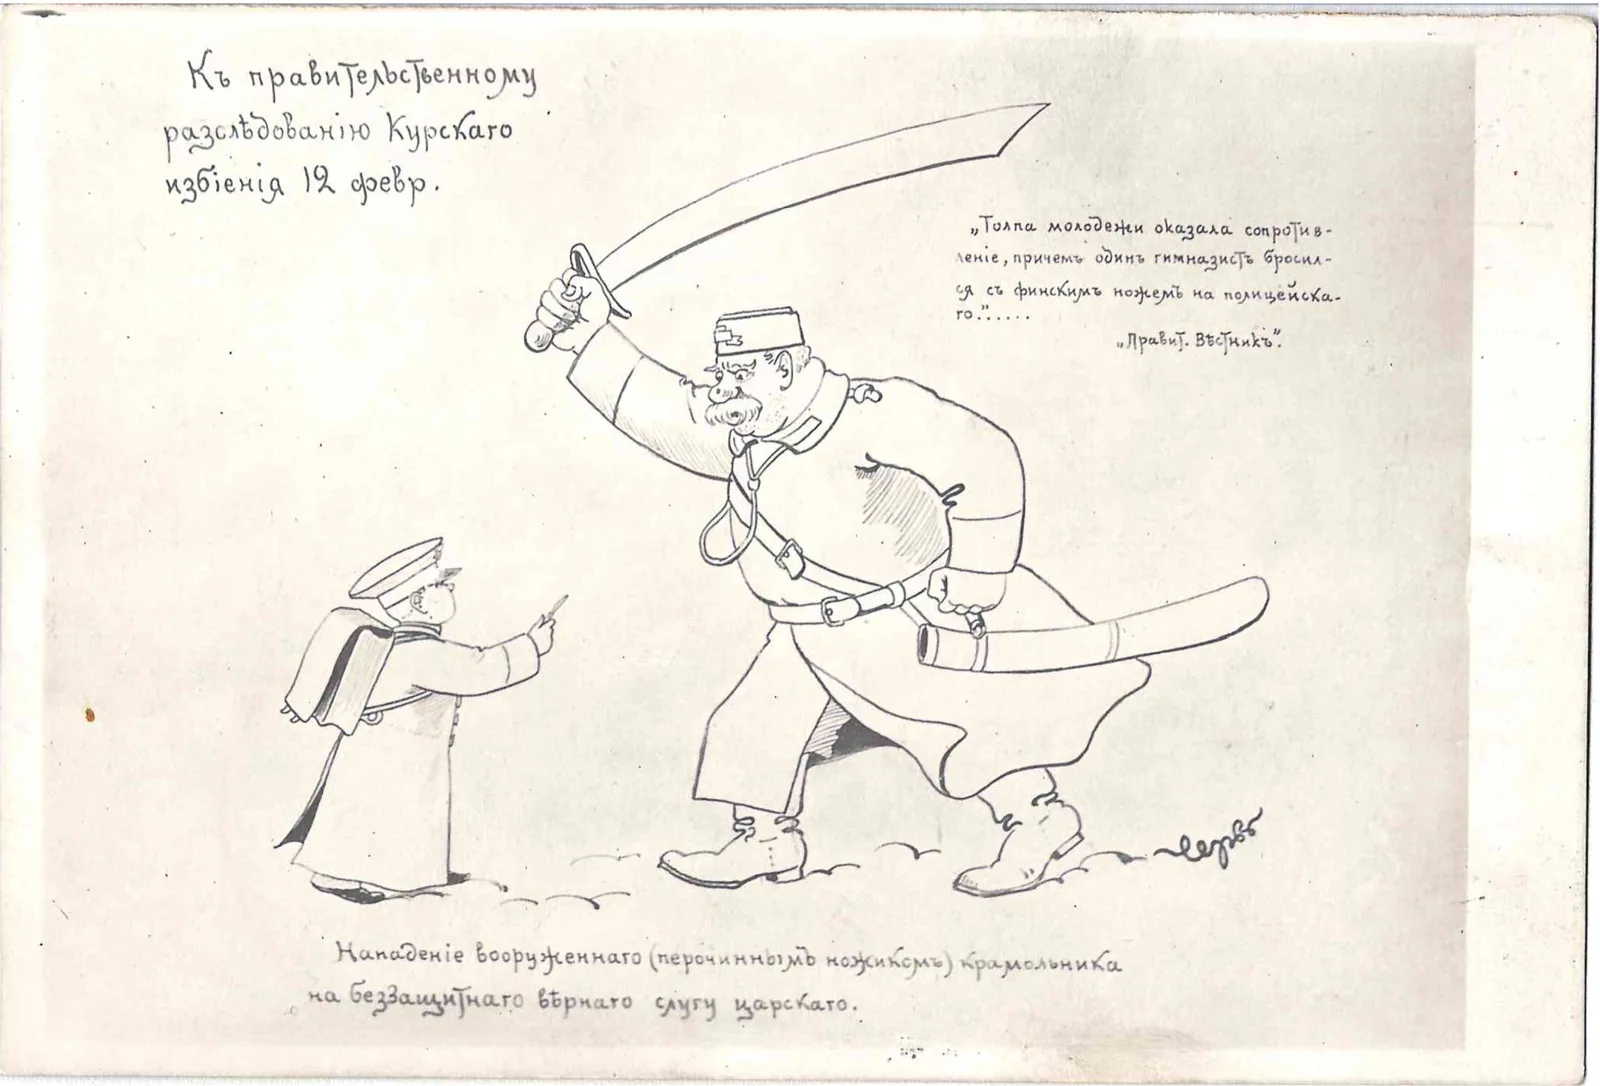 Къ правительственному
разслѣдованію Курскаго
избіенія 12 февр.
„Толпа молодежи оказала сопротив-
леніе, причемъ одинъ гимназистъ бросил-
ся съ финскимъ ножемъ на полицейска-
го.“.....
„Правит. Вѣстникъ“.
Нападеніе вооруженнаго (перочиннымъ ножикомъ) крамольника
на беззащитнаго вѣрнаго слугу царскаго.